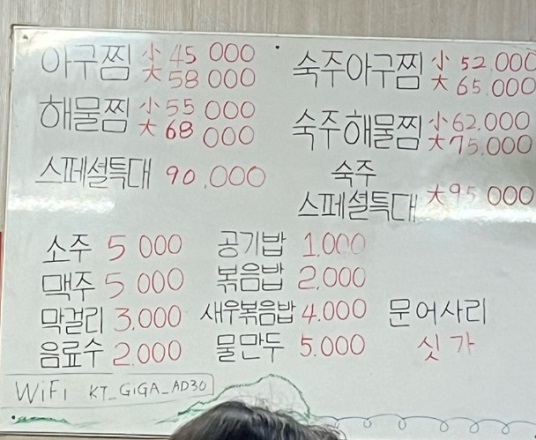 아구찜 小 45 000 大 58 000
숙주아구찜 小 52,000 大 65.000
해물찜 小 55 000 大 68 000
숙주해물찜 小 62.000 大 75.000
스페셜특대 90.000
숙주 스페셜특대 大 95.000
소주 5 000 공기밥 1.000
맥주 5 000 볶음밥 2.000
막걸리 3.000 새우볶음밥 4.000 문어사리
음료수 2.000 물만두 5.000 싯가
WiFi KT_GiGA_AD30